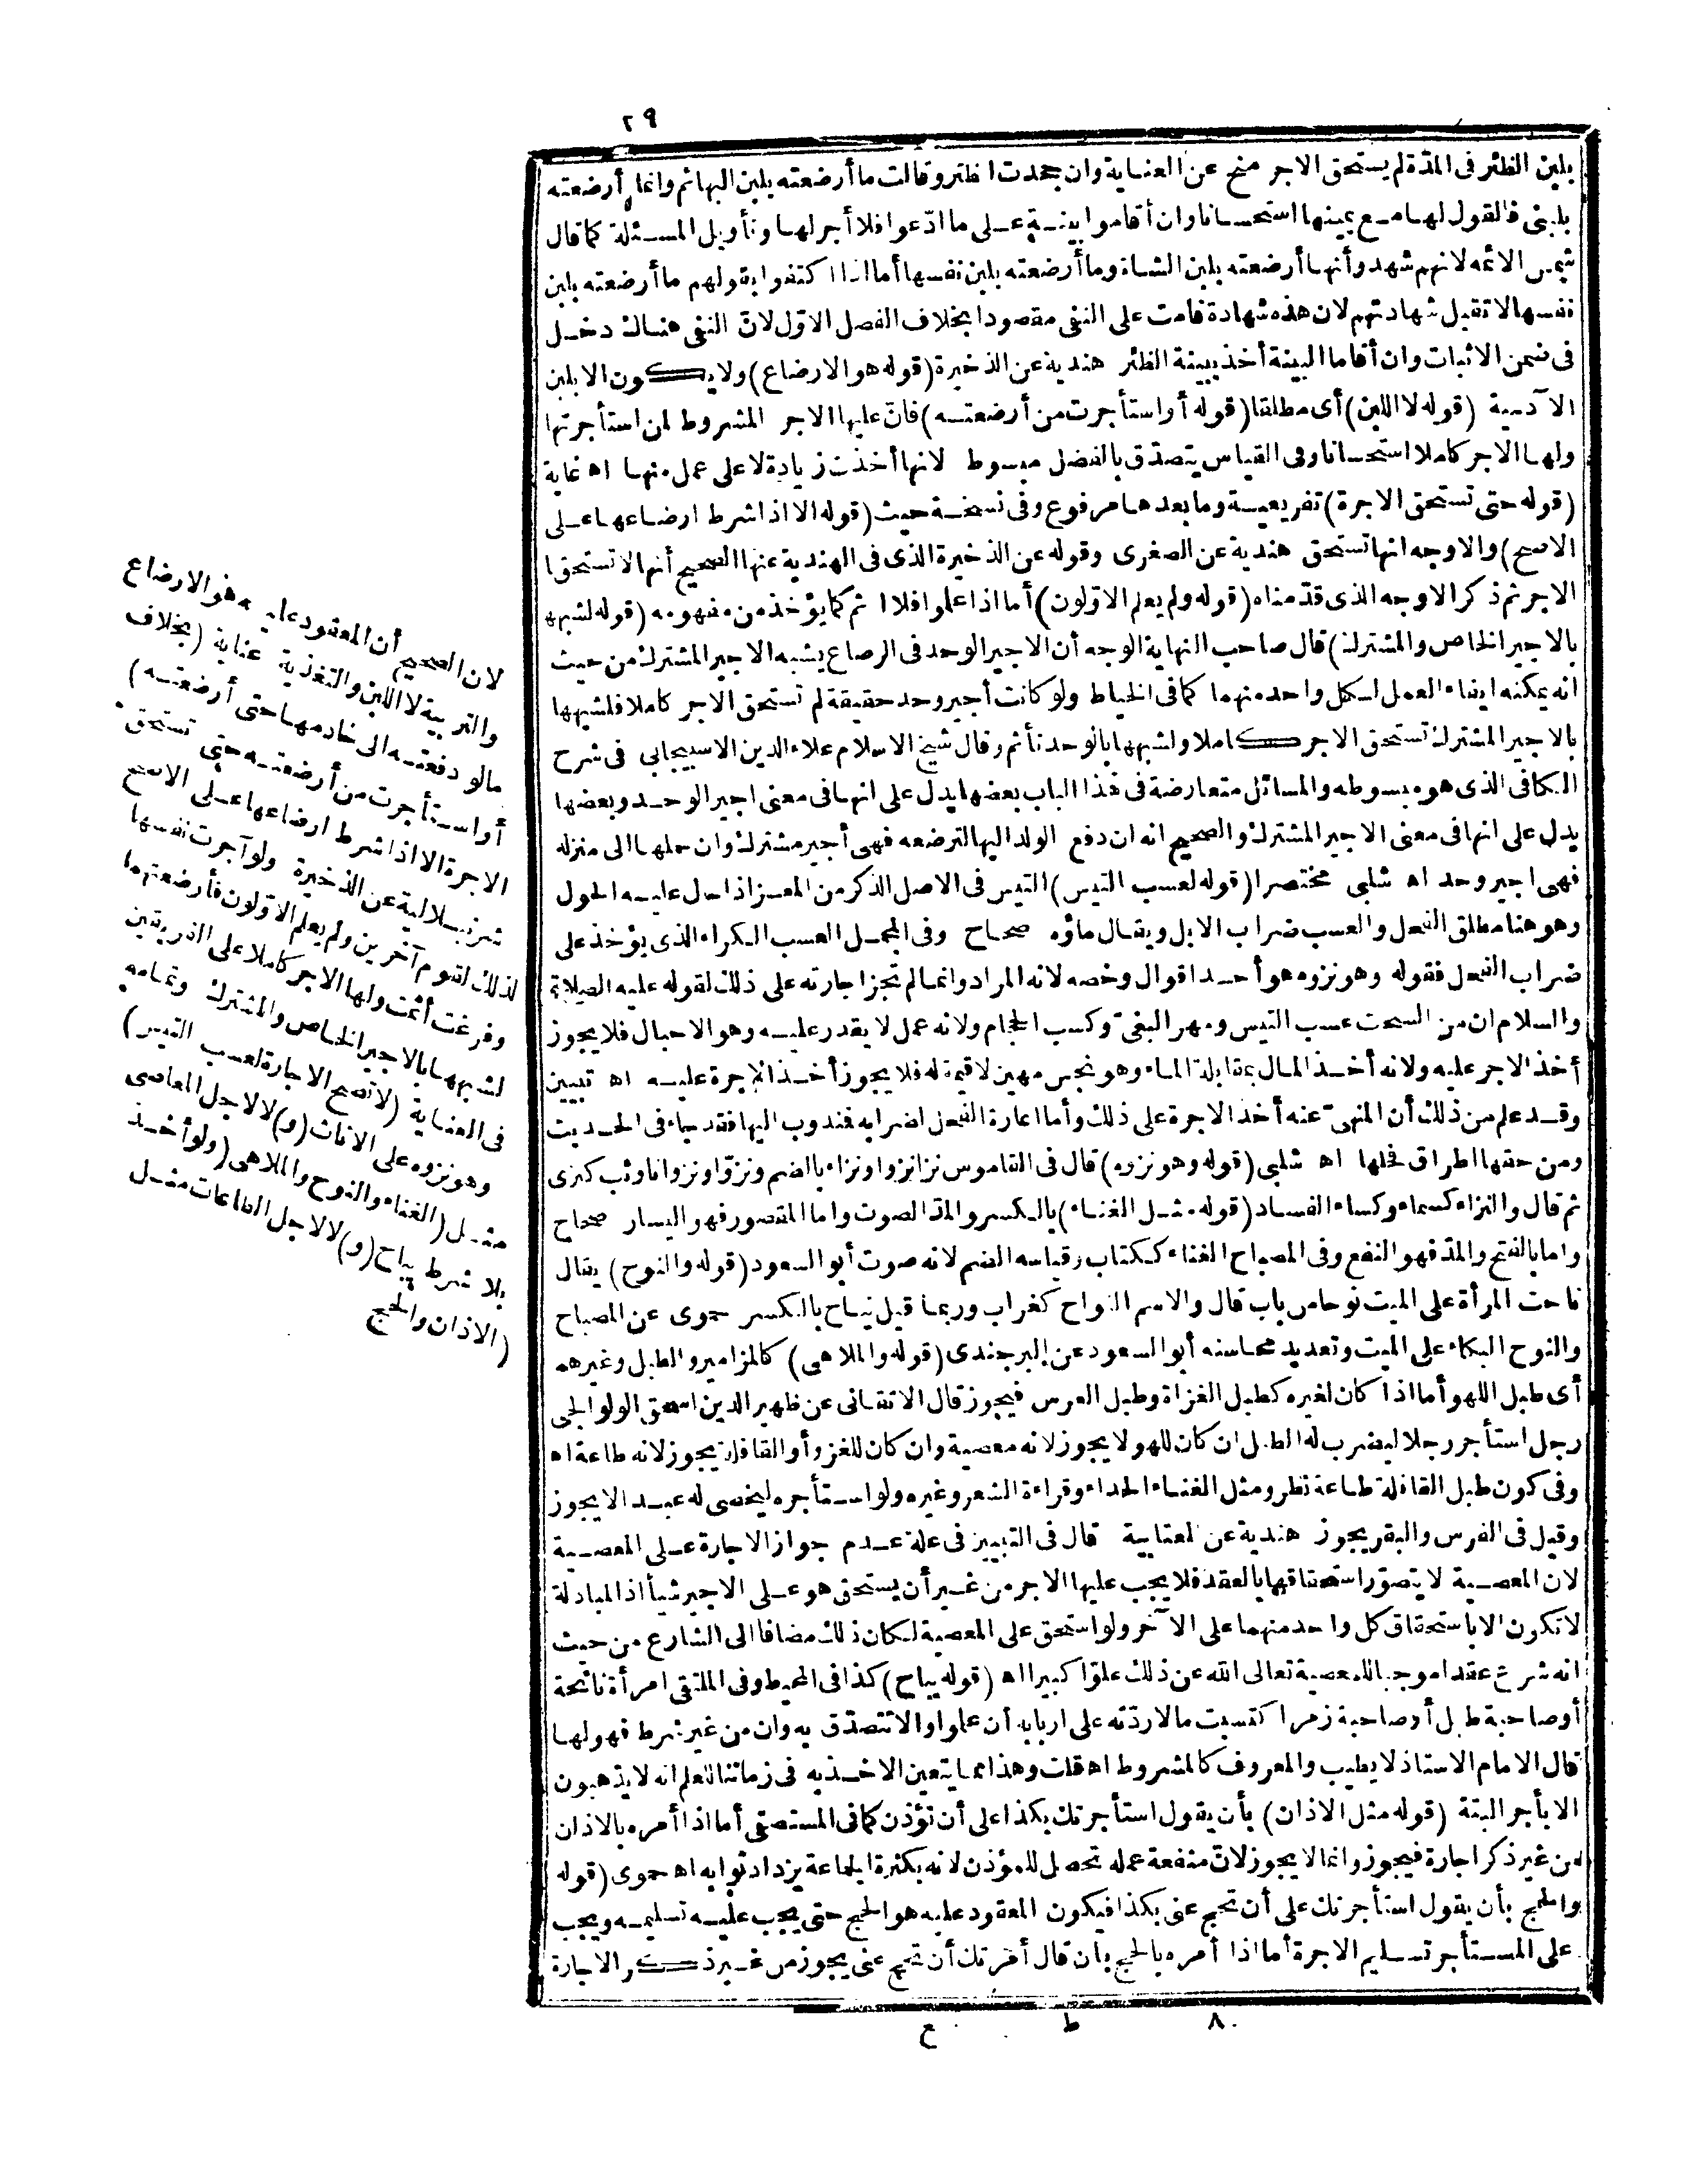 ٢٩
بلبن الظئر فى المدّة لم يستحق الاجر منح عن العناية وان جحدت الظئر وقالت ما أرضعته بلبن البهائم وانما أرضعته
بلبنى فالقول لها مع يمينها استحسانا وان أقاموا بينة على ما ادّعوا فلا أجر لها وتأويل المسئلة كما قال
شمس الائمه لانهم شهدوا أنها أرضعته بلبن الشاة وما أرضعته بلبن نفسها أما اذا اكتفوا بقولهم ما أرضعته بلبن
نفسها لا تقبل شهادتهم لان هذه شهادة قامت على النفى مقصودا بخلاف الفصل الاوّل لانّ النفى هناك دخل
فى ضمن الاثبات وان أقاما البينة أخذ ببينة الظئر هندية عن الذخيرة (قوله هو الارضاع) ولا يكون الا بلبن
الآدمية (قوله لا اللبن) أى مطلقا (قوله أو استأجرت من أرضعته) فانّ عليها الاجر المشروط لمن استأجرتها
ولها الاجر كاملا استحسانا وفى القياس يتصدّق بالفضل مبسوط لانها أخذت زيادة لا على عمل منها اه غاية
(قوله حتى تستحق الاجرة) تفريعية وما بعدها مرفوع وفى نسخة حيث (قوله الا اذا شرط ارضاعها على
الاصح) والاوجه انها تستحق هندية عن الصغرى وقوله عن الذخيرة الذى فى الهندية عنها الصحيح أنها لا تستحق ا
الاجر ثم ذكر الاوجه الذى قدّمناه (قوله ولم يعلم الاوّلون) أما اذا علموا فلا اثم كما يؤخذ من مفهومه (قوله لشبهها
بالاجير الخاص والمشترك) قال صاحب النهاية الوجه أن الاجير الوحد فى الرضاع يشبه الاجير المشترك من حيث
انه يمكنه ايفاء العمل لكل واحد منهما كما فى الخياط ولو كانت أجير وحد حقيقة لم تستحق الاجر كاملا فلشبهها
بالاجير المشترك تستحق الاجر كاملا ولشبهها بالوحد تأثم وقال شيخ الاسلام علاء الدين الاسبيجابى فى شرح
الكافى الذى هو مبسوطه والمسائل متعارضة فى هذا الباب بعضها يدل على انها فى معنى اجير الوحد وبعضها
يدل على انها فى معنى الاجير المشترك والصحيح انه ان دفع الولد اليها لترضعه فهى أجير مشترك وان حملها الى منزله
فهى اجير وحد اه شلبى مختصرا (قوله لعسب التيس) التيس فى الاصل الذكر من المعز اذا حال عليه الحول
وهو هنا مطلق الفحل والعسب ضراب الابل ويقال ماؤه صحاح وفى المجمل العسب الكراء الذى يؤخذ على
ضراب الفحل فقوله وهو نزوه هو أحد اقوال وخصه لانه المراد وانما لم تجز اجارته على ذلك لقوله عليه الصلاة
والسلام ان من السحت عسب التيس ومهر البغىّ وكسب الحجام ولانه عمل لا يقدر عليه وهو الاحبال فلا يجوز
أخذ الاجر عليه ولانه أخذ المال بمقابلة الماء وهو نجس مهين لا قيمة له فلا يجوز أخذ الاجرة عليه اه تبيين
وقد علم من ذلك أن المنهىّ عنه أخذ الاجرة على ذلك وأما اعارة الفحل لضرابه فندوب اليها فقد جاء فى الحديث
ومن حقها اطراق فحلها اه شلبى (قوله وهو نزوه) قال فى القاموس نزا نزوا ونزاء بالضم ونزوّا ونزوانا وثب كنزى
ثم قال والنزاء كسماء وكساء الفساد (قوله مثل الغناء) بالكسر والمدّ الصوت واما المقصور فهو اليسار صحاح
واما بالفتح والمدّ فهو النفع وفى المصباح الغناء ككتاب وقياسه الضم لانه صوت أبو السعود (قوله والنوح) يقال
ناحت المرأة على الميت نوحا من باب قال والاسم النواح كغراب وربما قيل نياح بالكسر حموى عن المصباح
والنوح البكاء على الميت وتعديد محاسنه أبو السعود عن البرجندى (قوله والملاهى) كالمزامير والطبل وغيرهم
أى طبل اللهو أما اذا كان لغيره كطبل الغزاة وطبل العرس فيجوز قال الاتقانى عن ظهير الدين اسحق الولوالجى
رجل استأجر رجلا ليضرب له الطبل ان كان للهو لا يجوز لانه معصية وان كان للغزو أو القافلة يجوز لانه طاعة اه
وفى كون طبل القافلة طاعة نظر ومثل الغناء الحداء وقراءة الشعر وغيره ولو استأجره ليخصى له عبدا لا يجوز
وقيل فى الفرس والبقر يجوز هندية عن العتابية قال فى التبيين فى علة عدم جواز الاجارة على المعصية
لان المعصية لا يتصوّر استحقاقها بالعقد فلا يجب عليها الاجر من غير أن يستحق هو على الاجير شيأ اذ المبادلة
لا تكون الا باستحقاق كل واحد منهما على الآخر ولو استحق على المعصية لكان ذلك مضافا الى الشارع من حيث
انه شرع عقدا موجبا للمعصية تعالى الله عن ذلك علوّا كبيرا اه (قوله يباح) كذا فى المحيط وفى الملتقى امرأة نائحة
أو صاحبة طبل أو صاحبة زمر اكتسبت مالا ردّته على اربابه ان علموا والا تتصدّق به وان من غير شرط فهو لها
قال الامام الاستاذ لا يطيب والمعروف كالمشروط اه قلت وهذا مما يتعين الاخذ به فى زماننا للعلم انه لا يذهبون
الا بأجر البتة (قوله مثل الاذان) بأن يقول استأجرتك بكذا على أن تؤذن كما فى المستصفى أما اذا أمره بالاذان
من غير ذكر اجارة فيجوز وانما لا يجوز لانّ منفعة عمله تحصل للمؤذن لانه بكثرة الجماعة يزداد ثوابه اه حموى (قوله
والحج بأن يقول استأجرتك على أن تحج عنى بكذا فيكون المعقود عليه هو الحج حتى يجب عليه تسليمه ويجب
على المستأجر تسليم الاجرة أما اذا أمره بالحج بأن قال أمرتك أن تحج عنى يجوز من غير ذكر الاجارة
لان الصحيح أن المعقود عليه هو الارضاع
والتربية لا اللبن والتغذية عناية (بخلاف
مالو دفعته الى خادمها حتى أرضعته)
أو استأجرت من أرضعته حتى تستحق
الاجرة الا اذا شرط ارضاعها على الاصح
شرنبلالية عن الذخيرة ولو آجرت نفسها
لذلك لقوم آخرين ولم يعلم الاوّلون فأرضعتهما
وفرغت أثمت ولها الاجر كاملا على الفريقين
لشبهها بالاجير الخاص والمشترك وتمامه
فى العناية (لا تصح الاجارة لعسب التيس)
وهو نزوه على الاناث (و) لا لاجل المعاصى
مثل (الغناء والنوح والملاهى) ولو أخذ
بلا شرط يباح (و) لا لاجل الطاعات مثل
(الاذان والحج
٨ ط ع